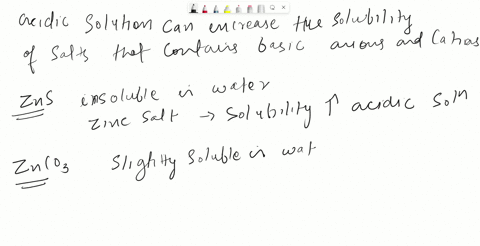 acidic solution can increase the solubility
of salts that contains basic anions and Catios
ZnS insoluble in water
zinc salt → solubility ↑ acidic soln
ZnCO3 slightly soluble in wat